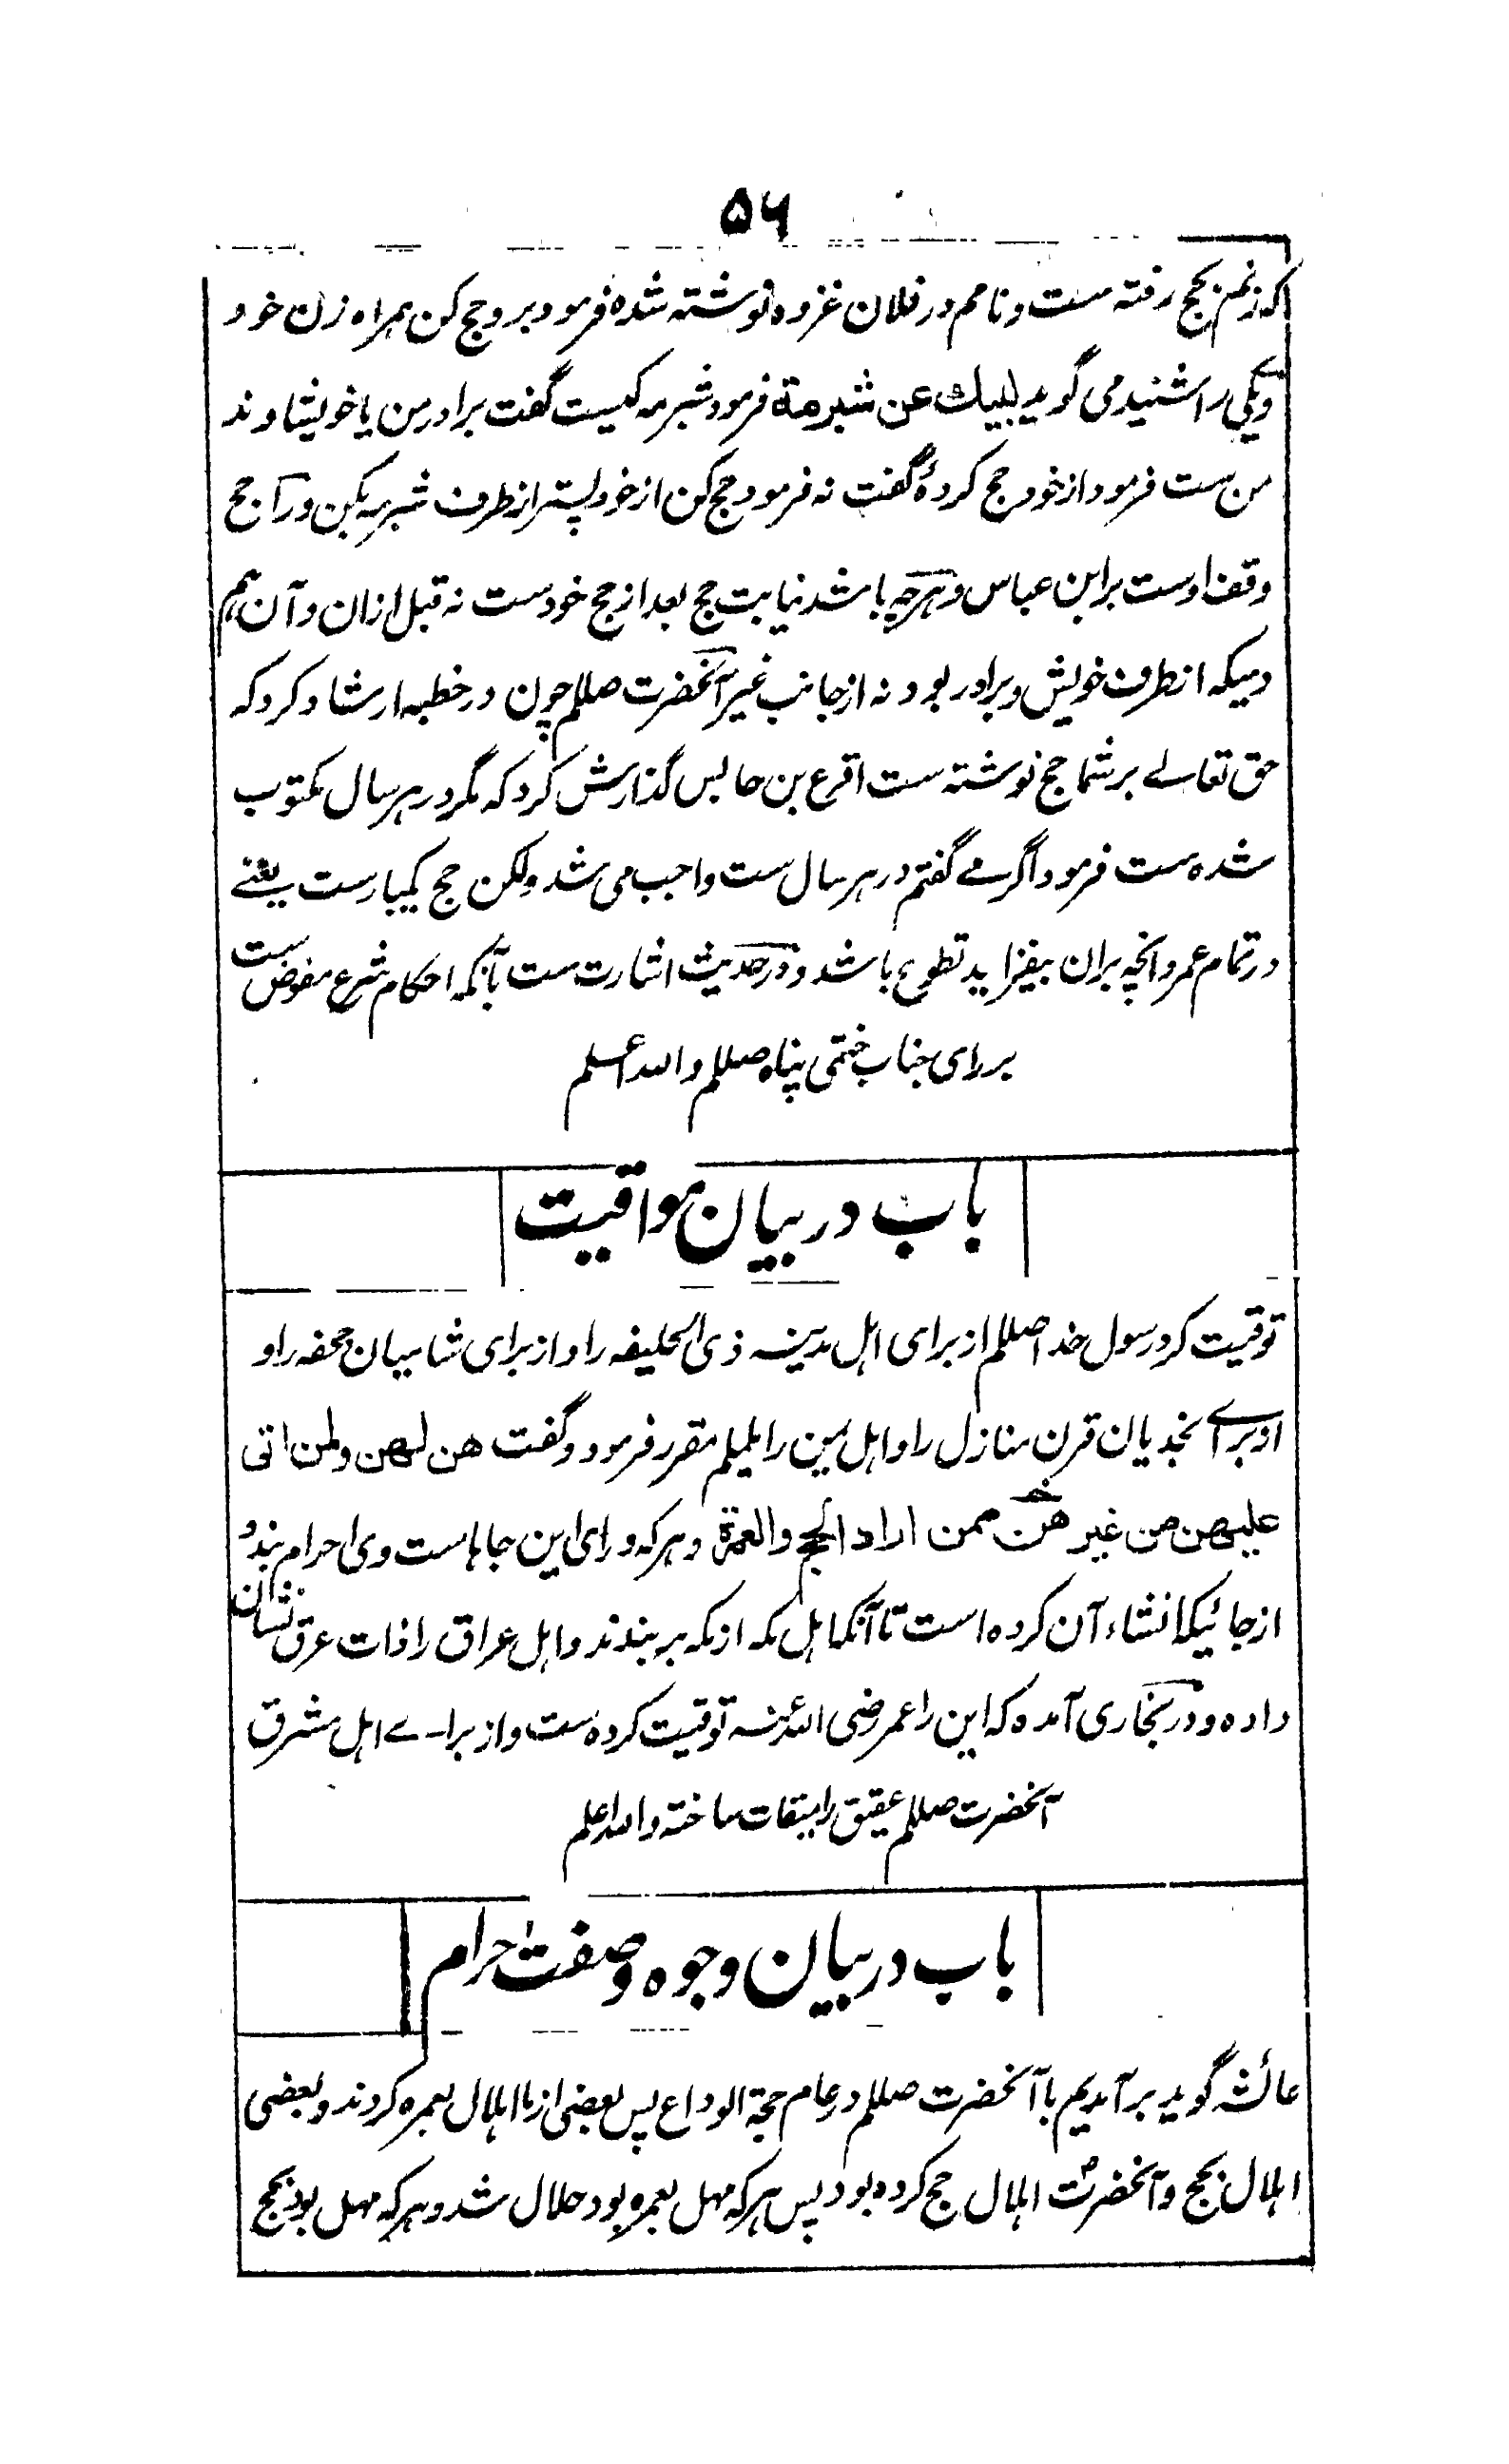 ۵۶
که زنم بحج رفته ست و نامم در فلان غزوه نوشته شده فرمود برو حج کن همراه زن خود
ویکی را شنید می گوید لبیك عن شبرمة فرمود شبرمه کیست گفت برادر من یا خویشاوند
من ست فرمود از خود حج کردهٔ گفت نه فرمود حج کن از خود پستر از طرف شبرمه بکن و راجح
وقف اوست بر ابن عباس و هرچه باشد نیابت حج بعد از حج خودست نه قبل ازان و آن هم
دمیکه از طرف خویش و برادر بود نه از جانب غیر آنحضرت صللم چون در خطبه ارشاد کرد که
حق تعالے بر شما حج نوشته ست اقرع بن حابس گذارش کرد که مگر در هر سال مکتوب
شده ست فرمود اگر مے گفتم در هر سال ست واجب می شد ولکن حج یکبارست یعنے
در تمام عمر و انچه بران بیفزاید تطوع باشد و در حدیث اشارت ست بآنکه احکام شرع مفوض ست
بر رای جناب ختمی پناه صللم والله اعلم
باب در بیان مواقیت
توقیت کرد رسول خدا صللم از برای اهل مدینه ذی الحلیفه را و از برای شامیان جحفه را و
از براے نجدیان قرن منازل را و اهل یمن را یلملم مقرر فرمود و گفت هن لهن ولمن اتی
علیهن من غیر هن ممن اراد الحج والعمرة و هر که ورای این جاهاست وی احرام بندد
از جائیکه انشاء آن کرده است تا آنکه اهل مکه از مکه بر بندند و اهل عراق را ذات عرق نشان
داده و در بخاری آمده که این را عمر رضی الله عنه توقیت کرده ست و از براے اهل مشرق
آنحضرت صللم عقیق را میقات ساخته والله اعلم
باب در بیان وجوه و صفت احرام
عائشه گوید برآمدیم با آنحضرت صللم در عام حجة الوداع پس بعضی از ما اهلال بعمره کردند و بعضی
اهلال بحج و آنحضرت اهلال حج کرده بود پس هر که مهل بعمره بود حلال شد و هر که مهل بود بحج